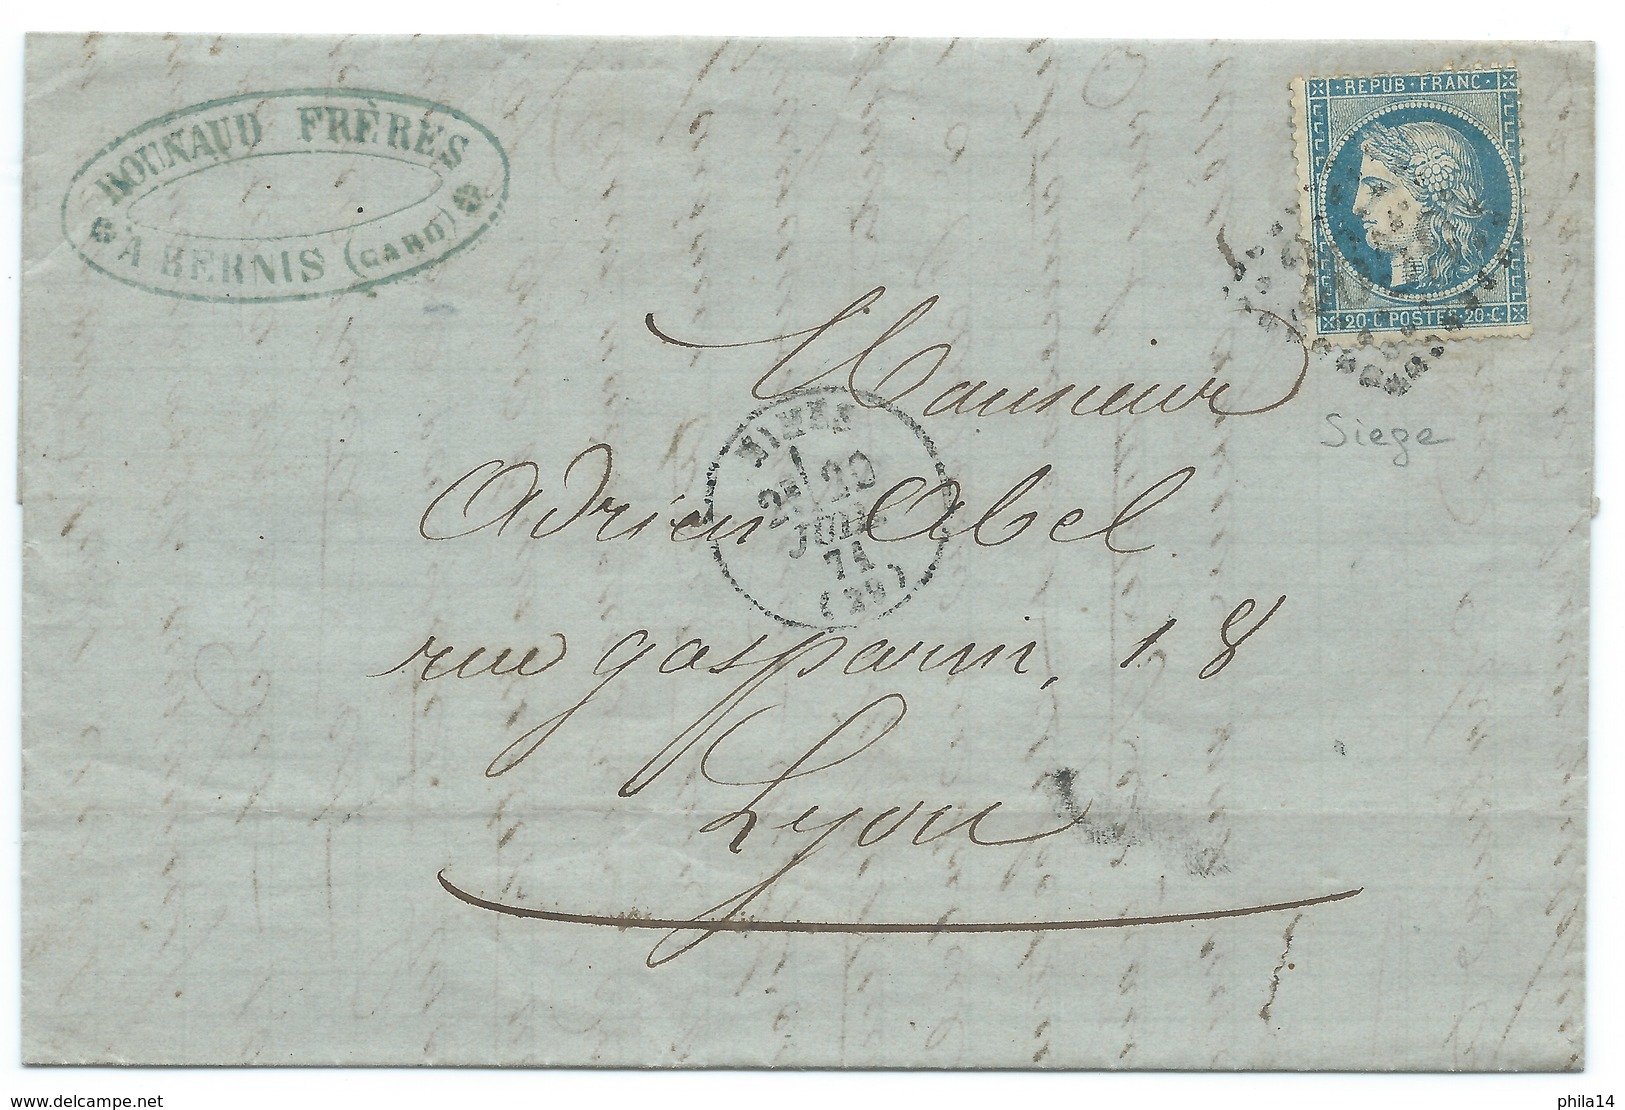 BOUNAUD FRÈRES
A BERNIS (GARD)
REPUB · FRANC
20 · C POSTES 20 · C
Siege
Monsieur
NIMES
20
71
Adrien Abel
rue gasparin, 18
Lyon
delcampe.net
phila14